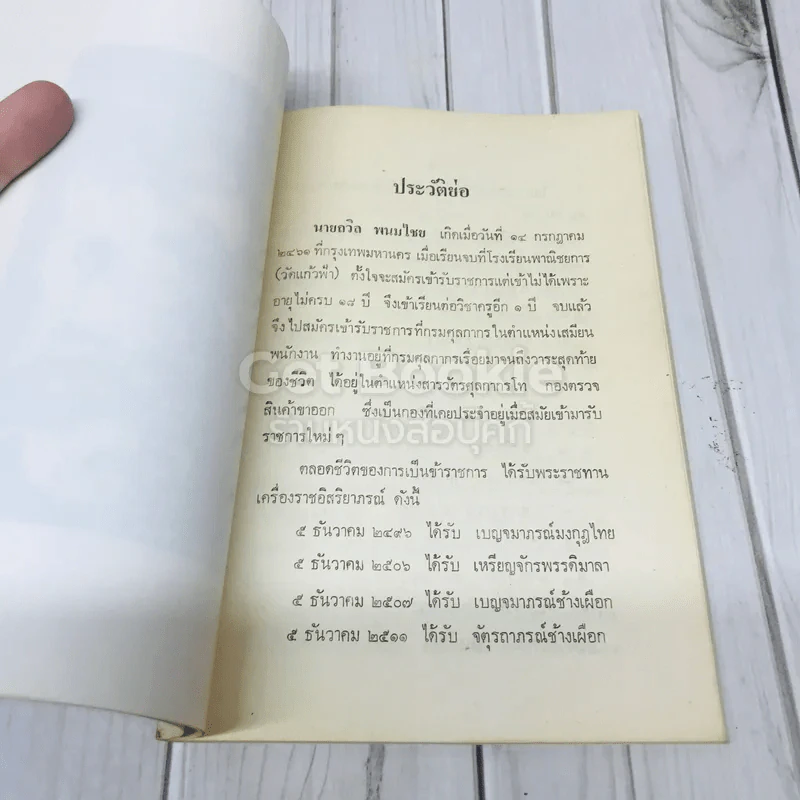 ประวัติย่อ
นายถวิล พนมไชย เกิดเมื่อวันที่ ๑๔ กรกฎาคม
๒๔๖๑ ที่กรุงเทพมหานคร เมื่อเรียนจบที่โรงเรียนพาณิชยการ
(วัดแก้วฟ้า) ตั้งใจจะสมัครเข้ารับราชการแต่เข้าไม่ได้เพราะ
อายุไม่ครบ ๑๘ ปี จึงเข้าเรียนต่อวิชาครูอีก ๑ ปี จบแล้ว
จึงไปสมัครเข้ารับราชการที่กรมศุลกากรในตำแหน่งเสมียน
พนักงาน ทำงานอยู่ที่กรมศุลกากรเรื่อยมาจนถึงวาระสุดท้าย
ของชีวิต ได้อยู่ในตำแหน่งสารวัตรศุลกากรโท กองตรวจ
สินค้าขาออก ซึ่งเป็นกองที่เคยประจำอยู่เมื่อสมัยเข้ามารับ
ราชการใหม่ ๆ
ตลอดชีวิตของการเป็นข้าราชการ ได้รับพระราชทาน
เครื่องราชอิสริยาภรณ์ ดังนี้
๕ ธันวาคม ๒๔๙๖ ได้รับ เบญจมาภรณ์มงกุฎไทย
๕ ธันวาคม ๒๕๐๖ ได้รับ เหรียญจักรพรรดิมาลา
๕ ธันวาคม ๒๕๐๗ ได้รับ เบญจมาภรณ์ช้างเผือก
๕ ธันวาคม ๒๕๑๑ ได้รับ จัตุรถาภรณ์ช้างเผือก
Got Bookie
ร้านหนังสือบุ๊คกี้